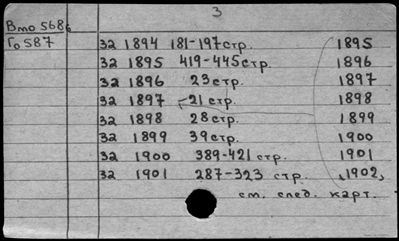 3
Вто 568б
То 587
за 1894 181-197 стр. 1895
за 1895 419-445 стр. 1896
за 1896 23 стр. 1897
за 1897 21 стр. 1898
за 1898 28 стр. 1899
за 1899 39 стр. 1900
за 1900 389-421 стр. 1901
за 1901 287-323 стр. 1902,
см. след. карт.